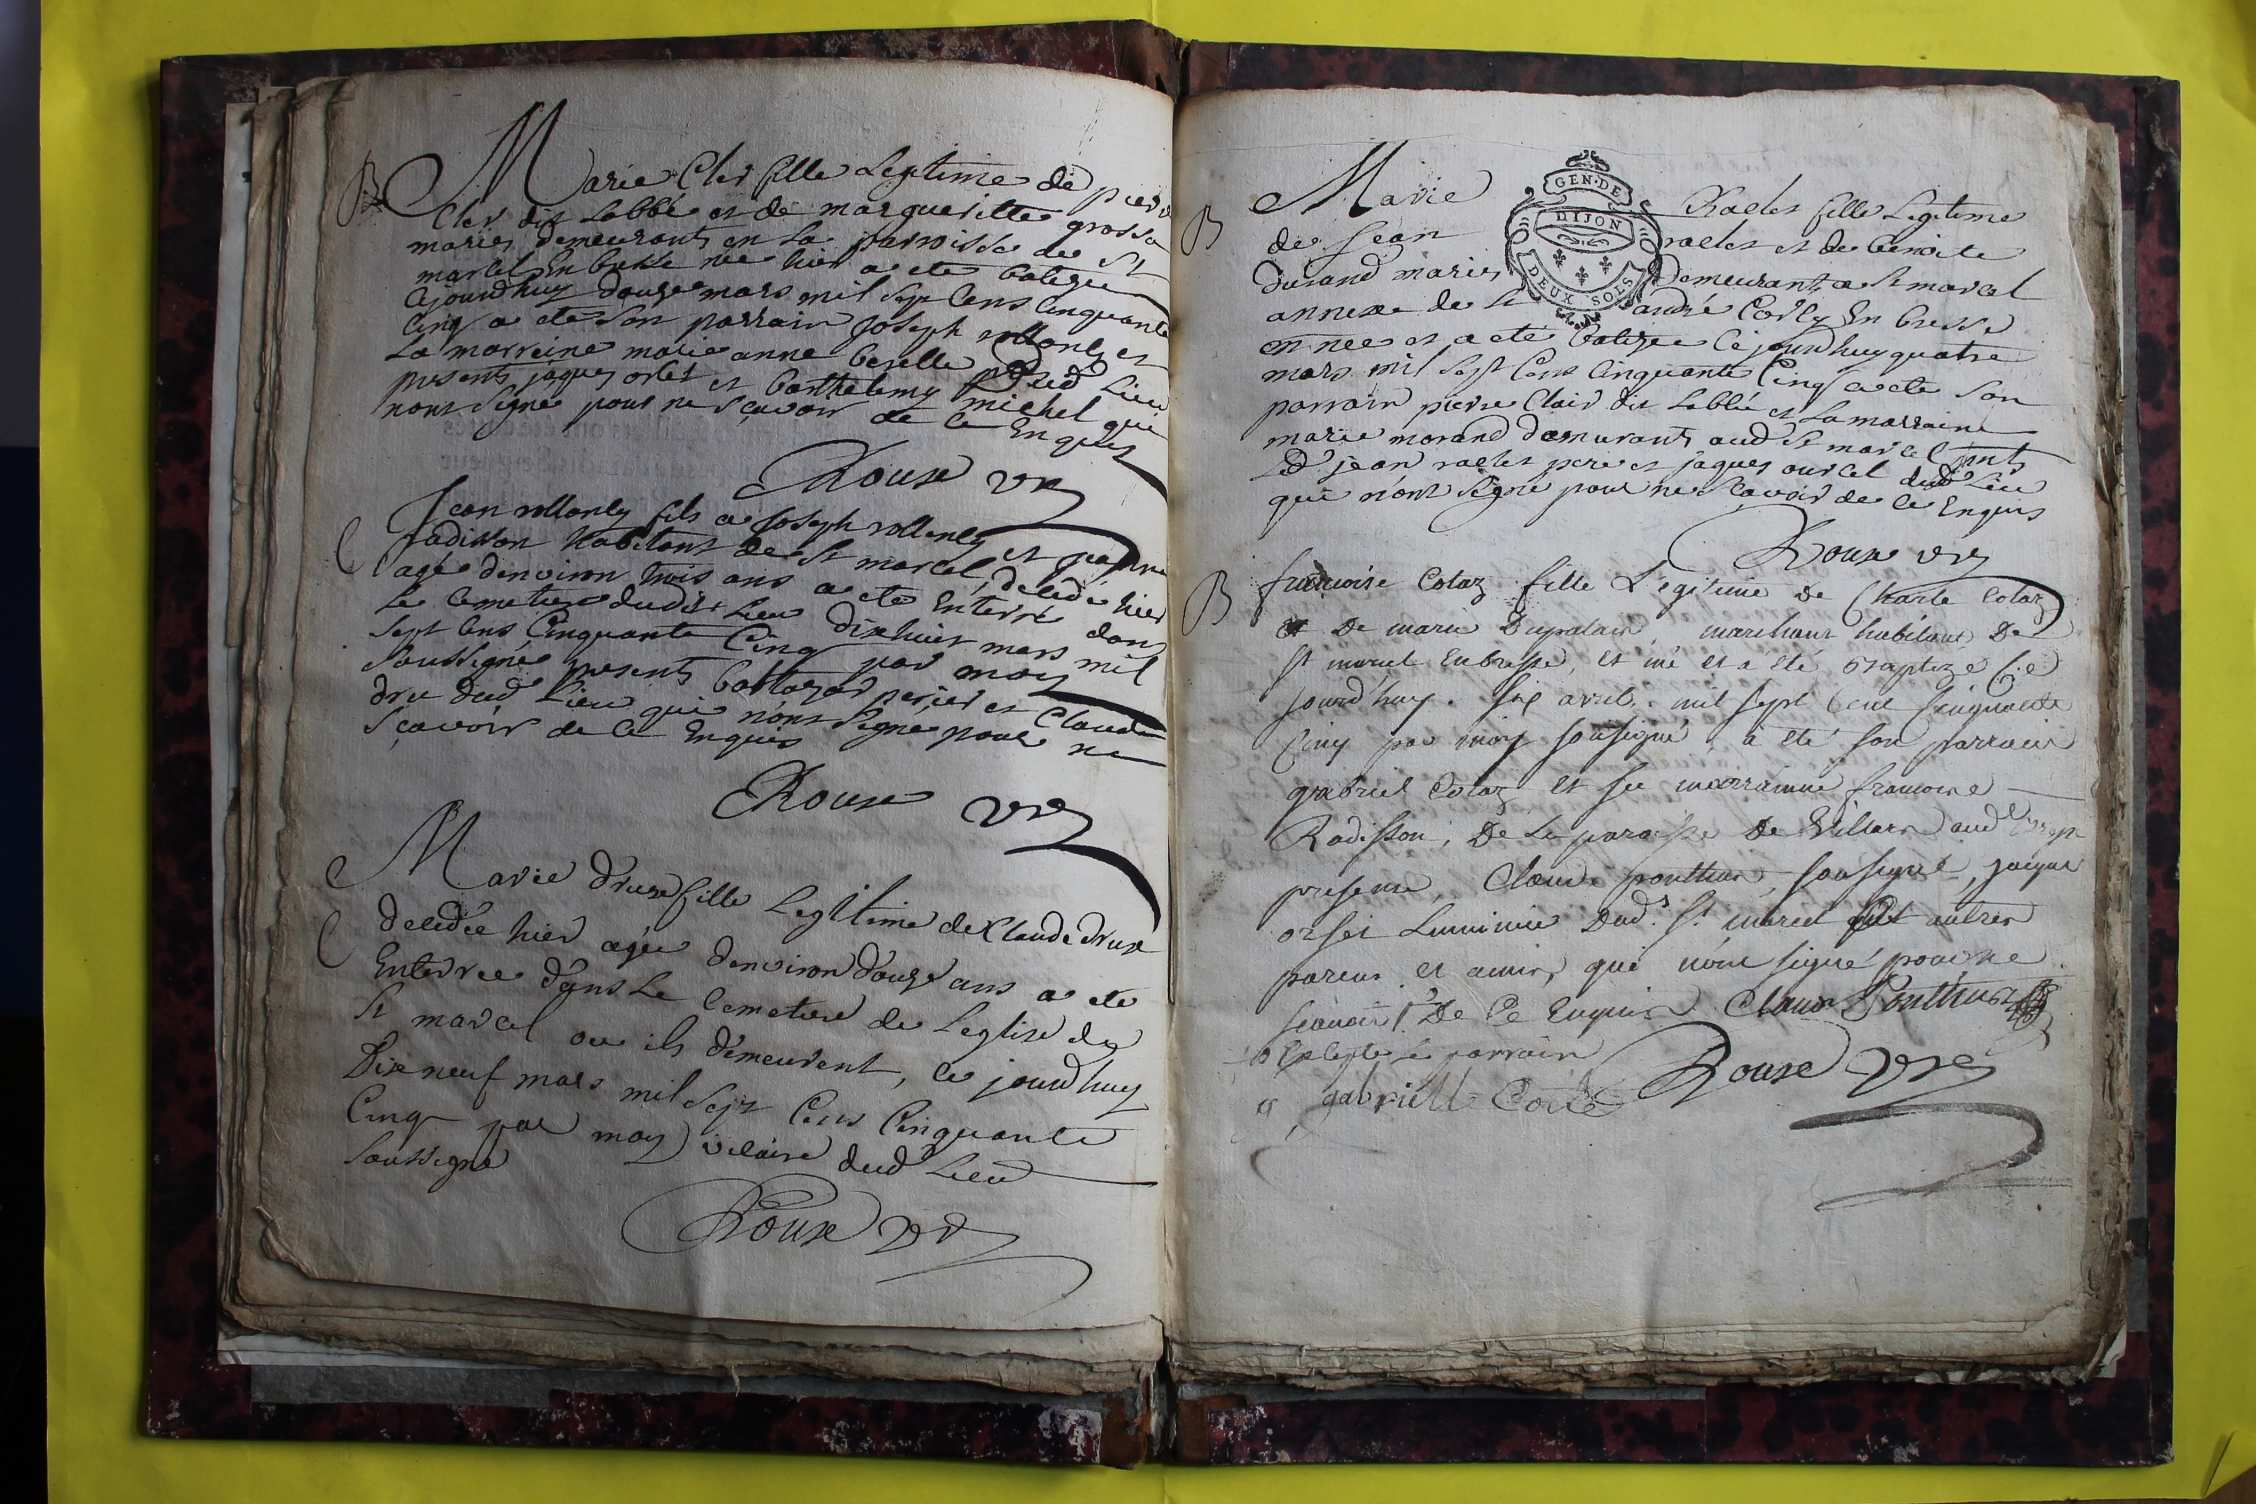 B
Marie Cler fille Legitime de pierre
Cler dit Labbé et de margueritte grossa
mariés demeurants en la parroisse de St
marcel En bresse née hier a ete batizée
Cejourdhuy douze mars mil sept Cens Cinquante
Cinq a ete son parrain Joseph rollanly et
La marreine marie anne berelle dud Lieu
presents jaques orset et barthelemy michel qui
nont signé pour ne sçavoir de ce Enquis
Roux vre
C
Jean rollanly fils a Joseph rollanly et jeanne
radisson habitant de St marcel, deledé hier
agé denviron trois ans a ete Enterré dans
Le Cemetiere dudit Lieu dixhuit mars mil
sept Cens Cinquante Cinq par moy
soussigné presents baltazar perier et Claude
dru dud Lieu qui nont signé pour ne
sçavoir de ce Enquis
Roux vre
C
Marie druxe fille Legitime de Claude druxe
deledée hier agée denviron douze ans a ete
Enterree dans Le Cemetiere de Leglise de
St marcel ou ils demeurent, ce jourdhuy
Dixneuf mars mil sept Cens Cinquante
Cinq par moy vicaire dud Lieu
soussigné
Roux vre
GEN·DE
DIJON
DEUX SOLS
B
Marie Raclet fille Legitime
de Jean raclet et de benoite
durand mariés Demeurants a St marcel
annexe de St andré Corly En bresse
est née et a eté batizée Cejourdhuy quatre
mars mil sept Cens Cinquante Cinq a ete son
parrain pierre Clair dit Labbé et La marraine
marie morand demeurants aud St marcel
Led. jean raclet pere et jaques dud Lieu
qui nont signé pour ne sçavoir de ce Enquis
Roux vre
B
francoise Cotaz fille Légitime De Charle Cotaz
et De marie Dupalais, marchant habitant De
St marcel En bresse, est né et a été Baptizé Ce
jourd'huy. six avril. mil sept Cent Cinquante
Cinq par moy sousigné, a été son parrain
gabriel Cotaz et sa marrainne francoise
Radisson, De La paroisse De Villars
presence Claude ponthus, sousigné, jaque
orset Dud. St. marcel et autres
parens et amis, qui n'ont signé pour ne
scavoir De Ce Enquis Claude Ponthus
Excepté le parrain
gabrielle Cote
Roux vre